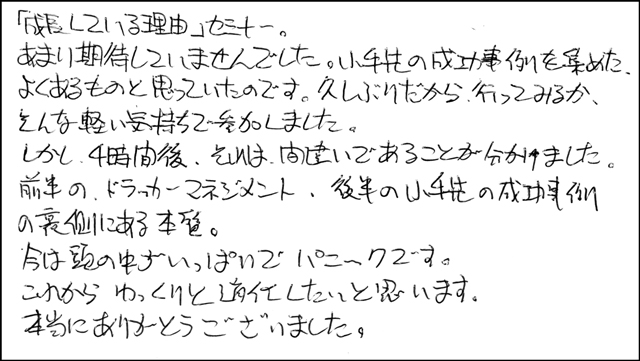 「成長している理由」セミナー。
あまり期待していませんでした。小手先の成功事例を集めた、
よくあるものと思っていたのです。久しぶりだから、行ってみるか、
そんな軽い気持ちで参加しました。
しかし、4時間後、それは、間違いであることが分かりました。
前半の、ドラッカーマネジメント、後半の小手先の成功事例
の裏側にある本質。
今は頭の中がいっぱいでパニックです。
これから ゆっくりと 消化したいと思います。
本当にありがとうございました。